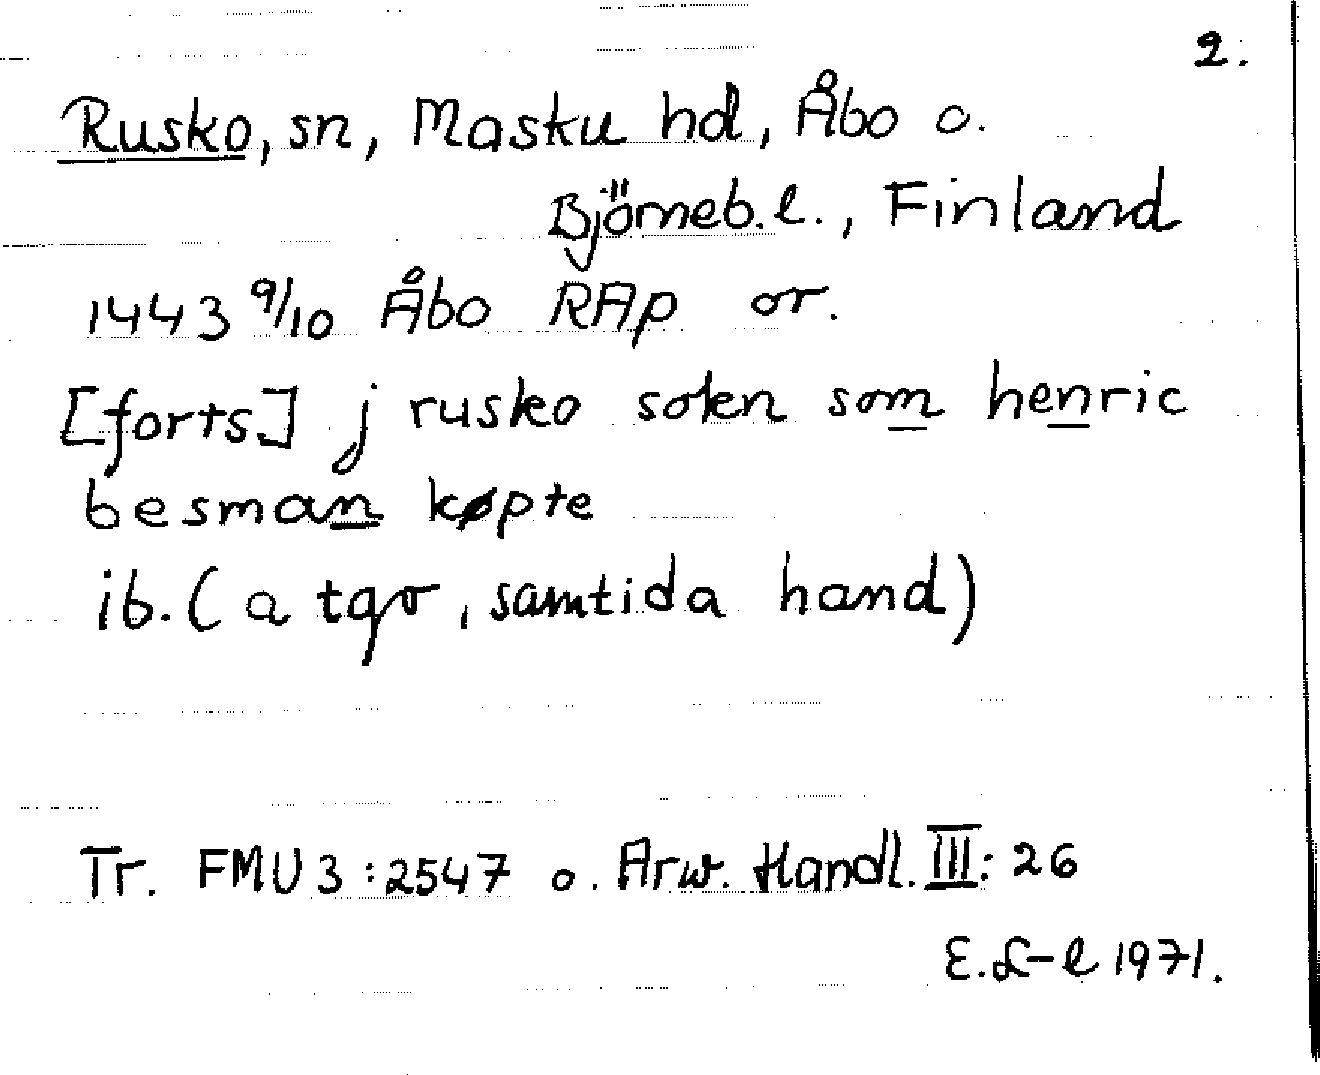 2.
Rusko, sn, Masku hd, Åbo o.
Björneb. l., Finland
1443 9/10 Åbo RAp or.
[forts] j rusko soken som henric
besman køpte
ib. (a tgo, samtida hand)
Tr. FMU 3:2547 o. Arw. Handl. III: 26
E.L-l 1971.